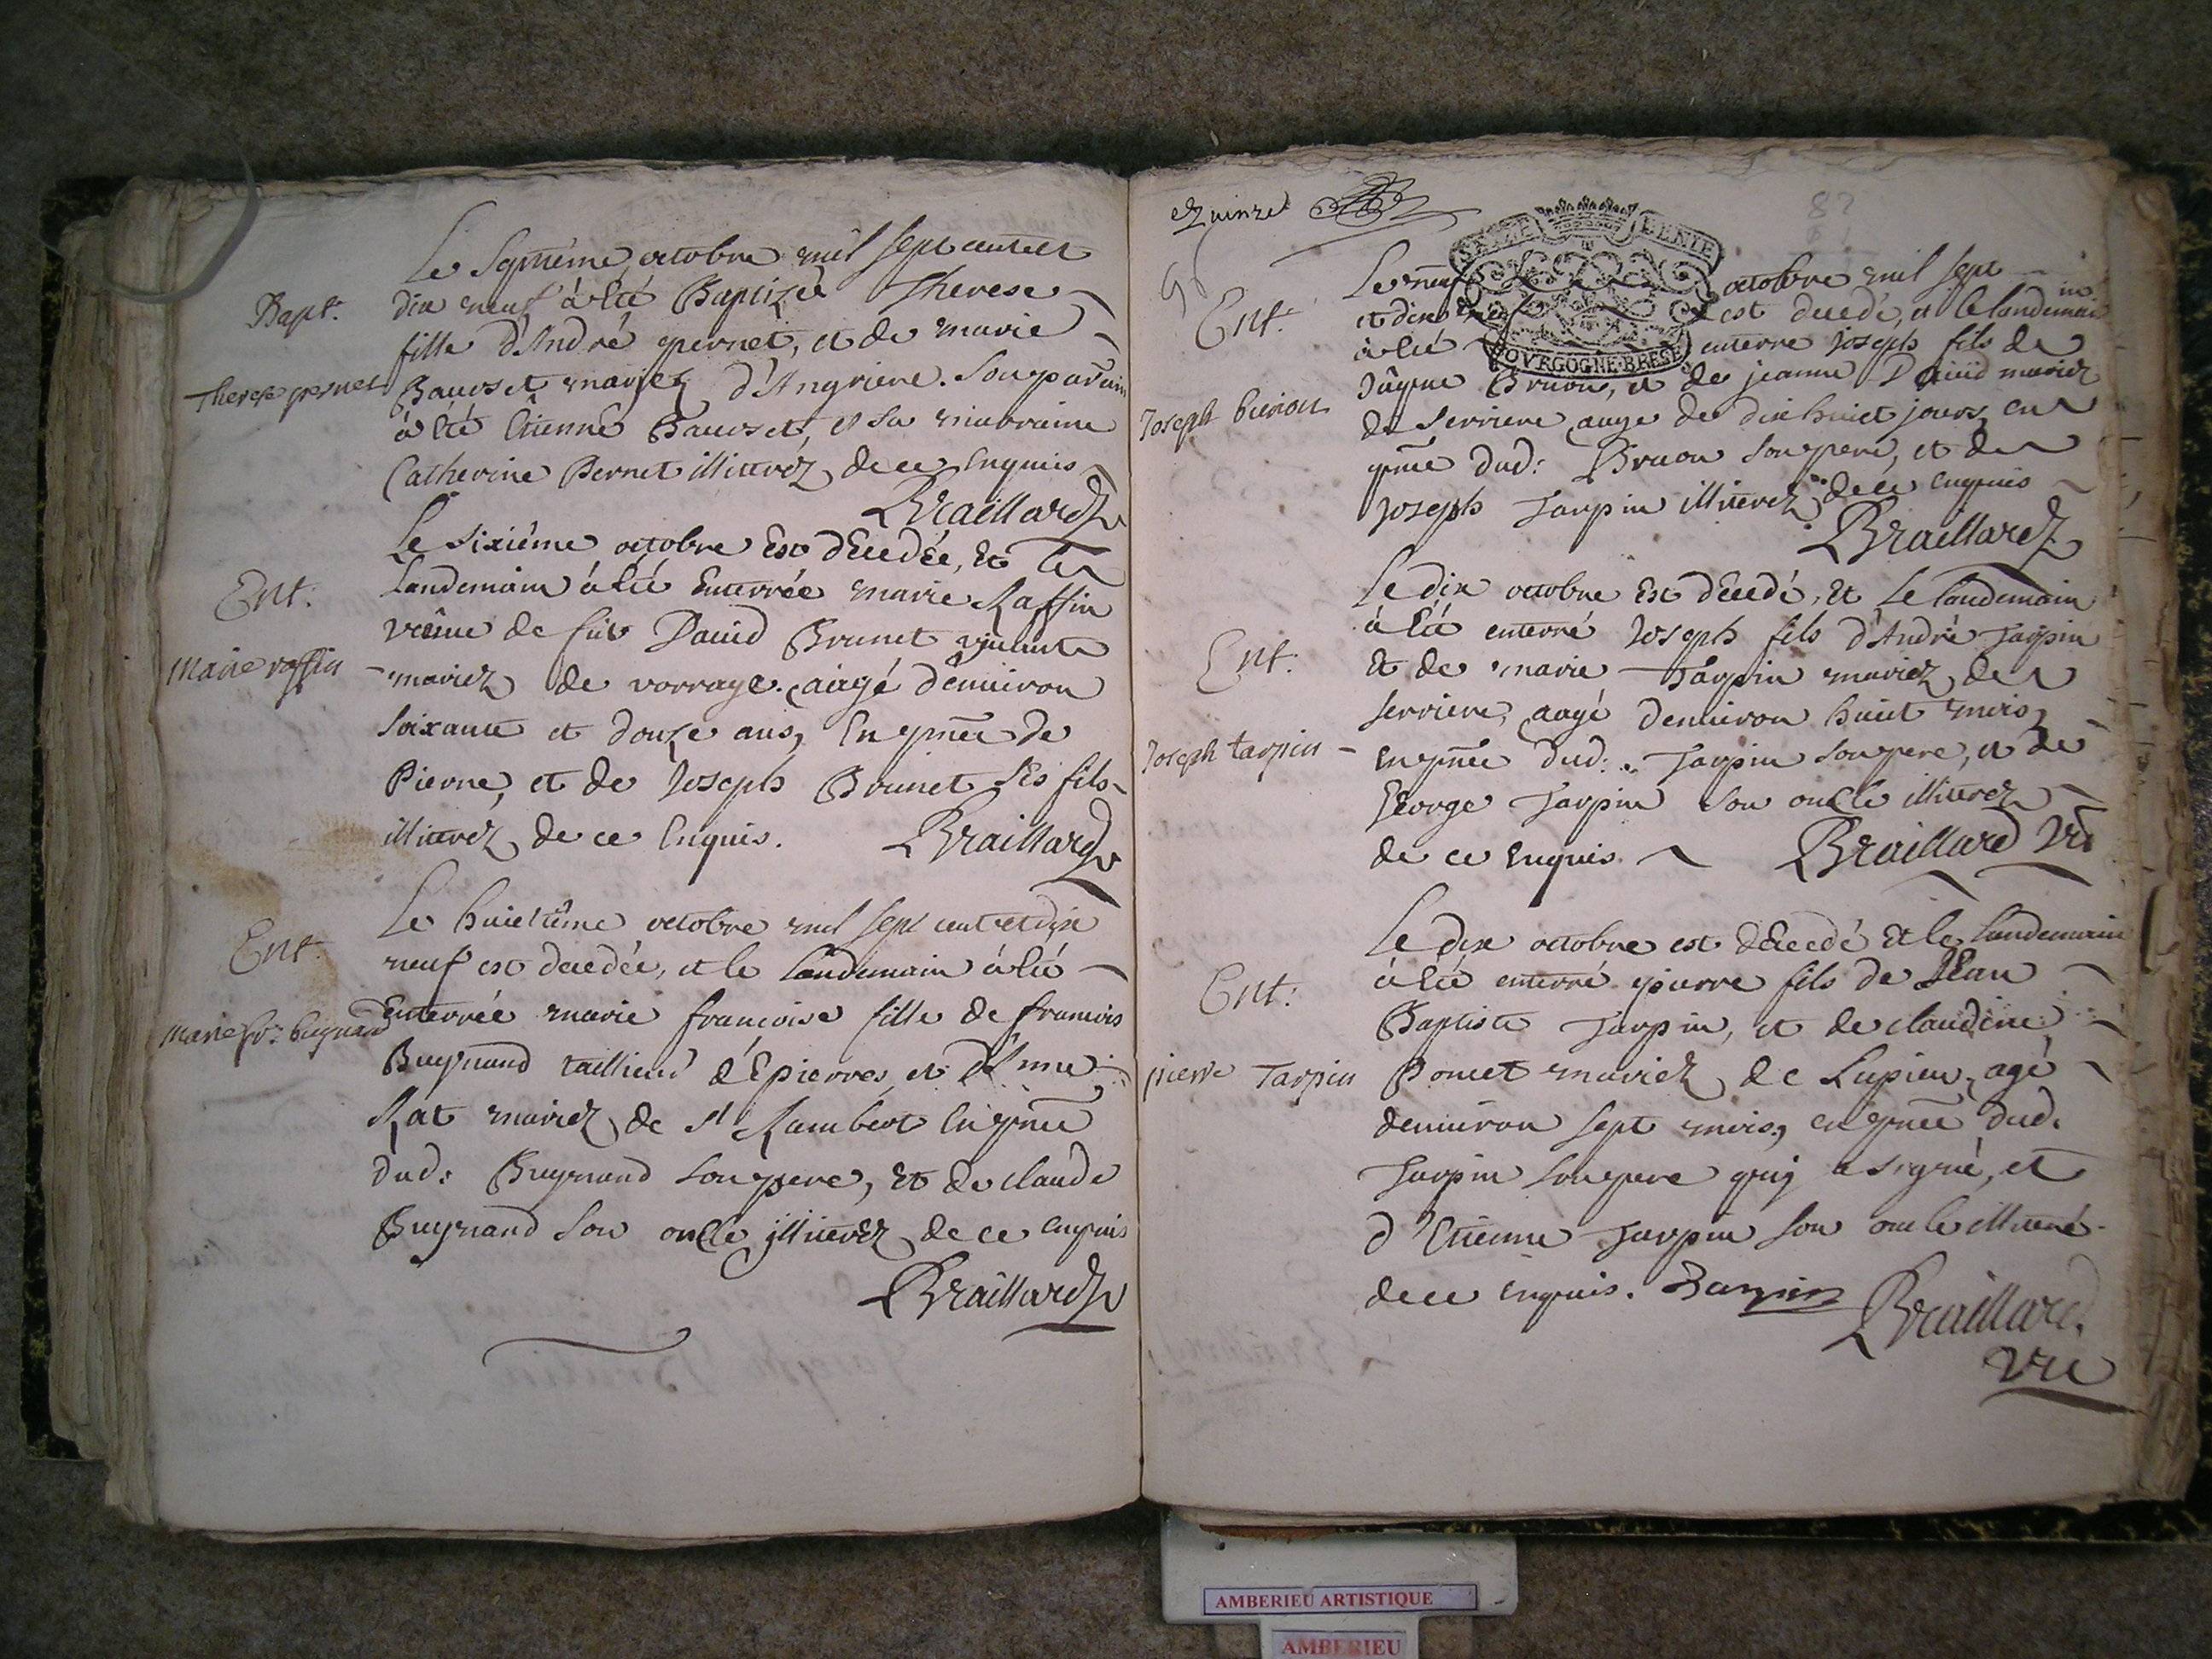 Bapt.
Therese pernet
Le Septiéme octobre mil sept cent et
dix neuf à été Baptizé Therese
fille d'André pernet, et de marie
Bauset mariez d'Angriere. Son parain
à été Etienne Bauset, et sa maraine
Catherine Pernet illiterez de ce Enquis
Braillard
Ent.
Marie raffin
Le sixiéme octobre Est dEcedée, Et le
Landemain à été Enterrée marie Raffin
veüue de fut Dauid Brunet viuant
mariez de vorrage. aagé denuiron
soixante et douze ans, En pnce de
Pierre, et de Joseph Brunet ses fils
illiterez de ce Enquis. Braillard
Ent.
marie fr. bugnand
Le huictiéme octobre mil sept cent et dix
neuf est decedée, et le Landemain à été
Enterrée marie francoise fille de francois
Bugnand taillieur dEpierres et d'Anne
Rat mariez de st Rambert En pnce
dud: Bugnand son pere, Et de claude
Bugnand son oncle illiterez de ce enquis
Braillard
quinze
82
GENE
BOVRGOGNE BRESSE
Ent.
Joseph bruon
Le neuf octobre mil sept
et dix est decedé, et le landemain
à été enterré Joseph fils de
Bruon, et de jeanne Dauid mariez
de serriere aage de dix huict jours, en
pnce dud: Bruon son pere, et de
Joseph Tarpin illiterez de ce enquis
Braillard
Ent.
Joseph tarpin
Le dix octobre Est dEcedé, Et Le landemain
à été enterré Joseph fils d'André Tarpin
Et de marie Tarpin mariez de
serriere, aagé denuiron huict mois,
En pnce dud: Tarpin son pere, et de
George Tarpin son oncle illiterez
de ce Enquis. Braillard vic
Ent:
pierre Tarpin
Le dix octobre est dEcedé Et le Landemain
à été enterré pierre fils de Jean
Baptiste Tarpin, et de claudine
Poncet mariez de Lupieu, agé
denuiron sept mois, en pnce dud.
Tarpin son pere quy a signé, et
d'Etienne Tarpin son oncle illiteré
de ce enquis. Tarpin Braillard
vic
AMBERIEU ARTISTIQUE
AMBERIEU